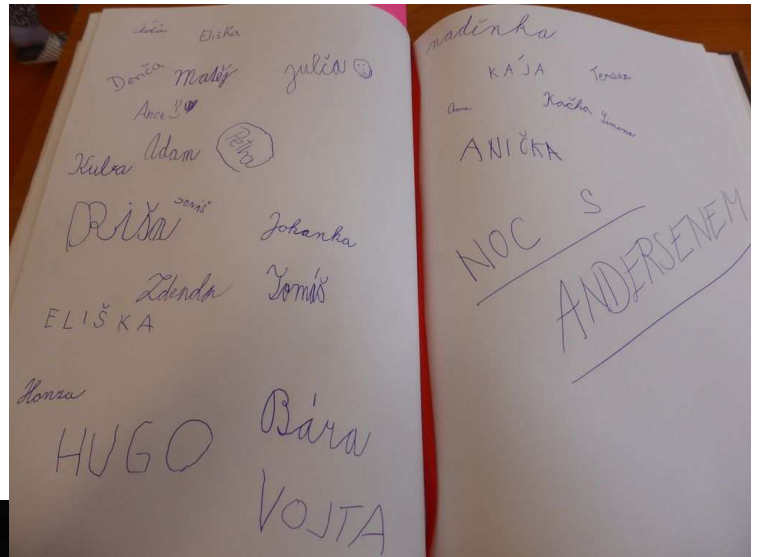 Eliška
Denča Matěj Julča
Anet
Kuba Adam Petra
Ríša JONÁŠ Johanka
Zdenda Tomáš
ELIŠKA
Honza
HUGO Bára
VOJTA
naděnka
KÁJA Terezka
Kačka Simona
ANIČKA
NOC S
ANDERSENEM